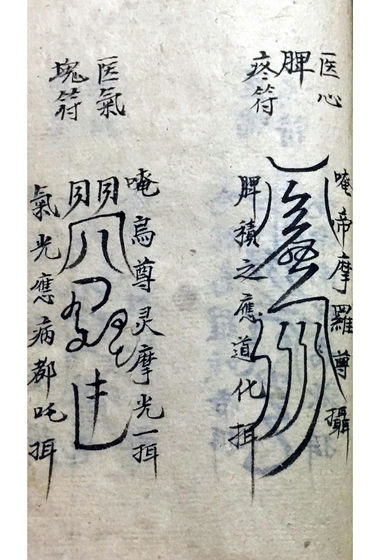 医心
脾
疼符
唵帝摩羅尊攝
脾積之應道化揖
医氣
塊符
唵烏尊灵摩光一揖
氣光應病都吒揖